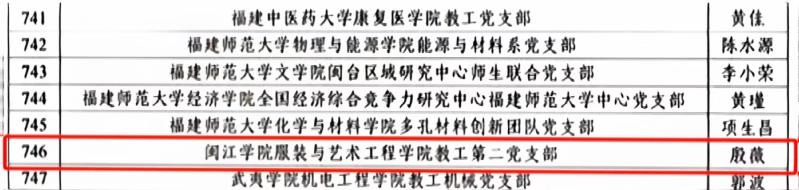 741 福建中医药大学康复医学院教工党支部 黄佳
742 福建师范大学物理与能源学院能源与材料系党支部 陈水源
743 福建师范大学文学院闽台区域研究中心师生联合党支部 李小荣
744 福建师范大学经济学院全国经济综合竞争力研究中心福建师范大学中心党支部 黄瑾
745 福建师范大学化学与材料学院多孔材料创新团队党支部 项生昌
746 闽江学院服装与艺术工程学院教工第二党支部 殷薇
747 武夷学院机电工程学院教工机械党支部 郭波